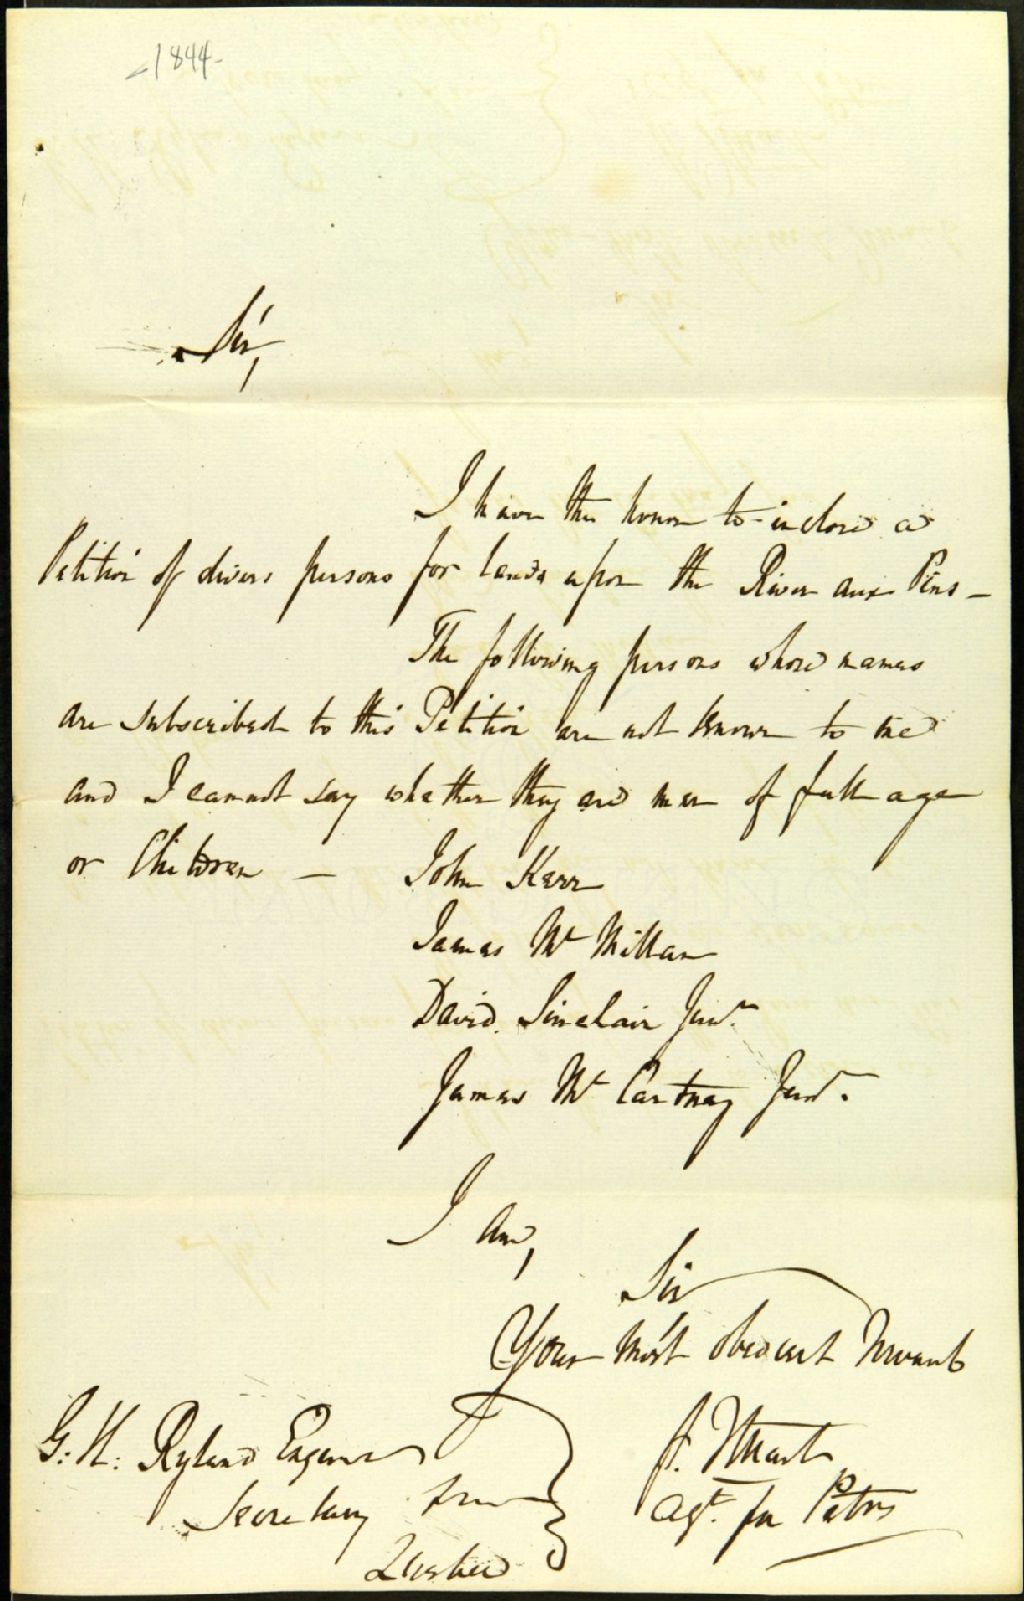 1844
Sir,
I have the honor to inclose a
Petition of divers persons for lands upon the River aux Pins –
The following persons whose names
are subscribed to this Petition are not known to me
and I cannot say whether they are men of full age
or Children – John Kerr
James Mc Millan
David Sinclair Junr.
James Mc Cartney Junr.
I am,
Sir
Your most obedient Servant
G: H: Ryland Esquire
J. Stuart
Secretary
Agt. for Petrs
Quebec